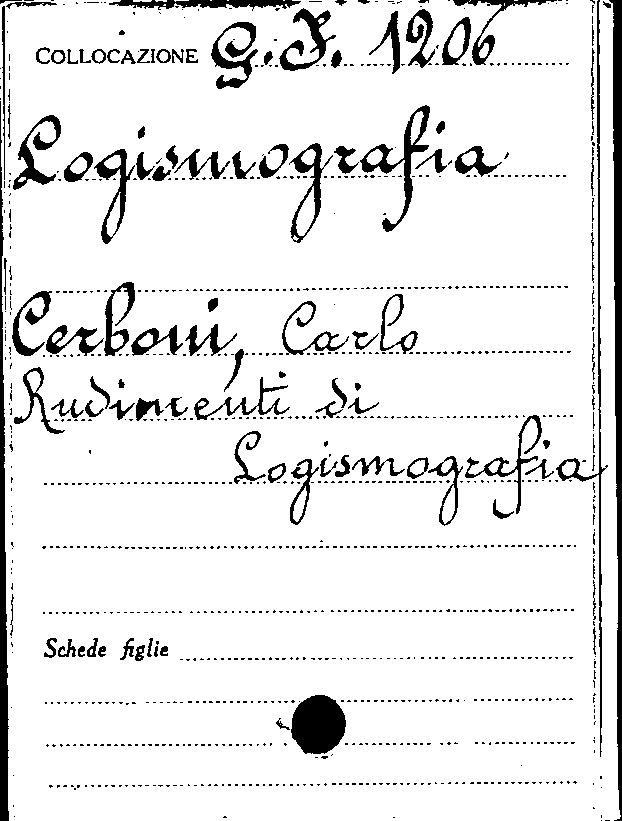 COLLOCAZIONE G. F. 1206
Logismografia
Cerboni, Carlo
Rudimenti di
Logismografia
Schede figlie